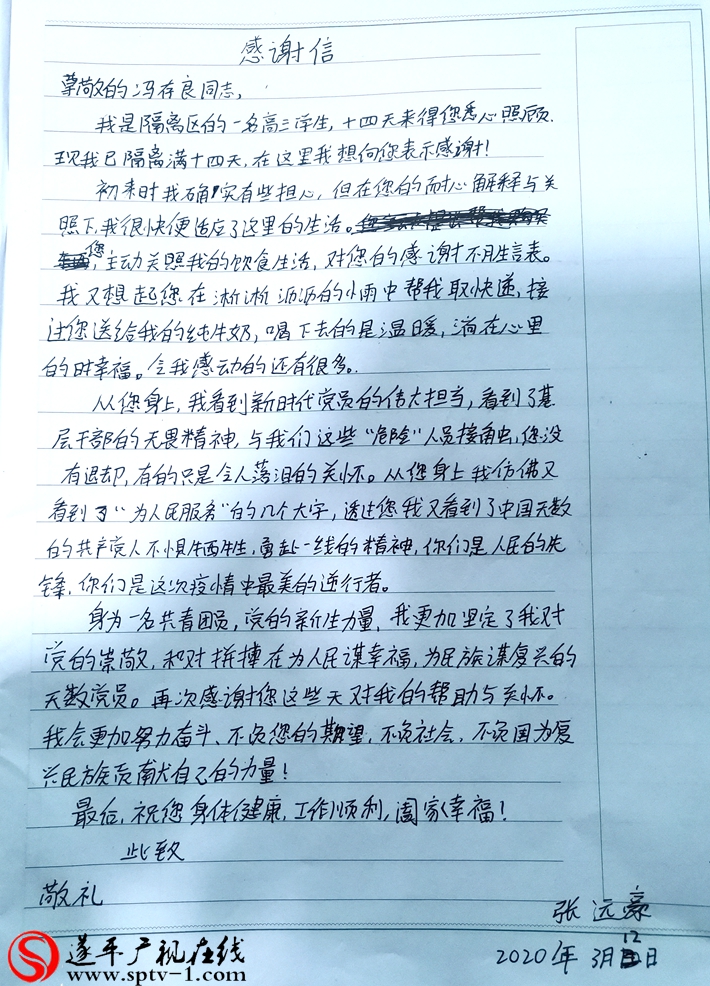 感谢信
尊敬的冯存良同志,
我是隔离区的一名高三学生,十四天来得您悉心照顾.
现我已隔离满十四天,在这里我想向您表示感谢!
初来时我确实有些担心,但在您的耐心解释与关
照下,我很快便适应了这里的生活。
您,主动关照我的饮食生活,对您的感谢不用言表。
我又想起您在淅淅沥沥的小雨中帮我取快递,接
过您送给我的纯牛奶,喝下去的是温暖,淌在心里
的时幸福。令我感动的还有很多.
从您身上,我看到新时代党员的伟大担当,看到了基
层干部的无畏精神,与我们这些“危险”人员接触,您没
有退却,有的只是令人落泪的关怀。从您身上我仿佛又
看到了“为人民服务”的几个大字,透过您我又看到了中国无数
的共产党人不惧牺牲,勇赴一线的精神,你们是人民的先
锋,你们是这次疫情中最美的逆行者。
身为一名共青团员,党的新生力量,我更加坚定了我对
党的崇敬,和对拼搏在为人民谋幸福,为民族谋复兴的
无数党员。再次感谢您这些天对我的帮助与关怀。
我会更加努力奋斗、不负您的期望,不负社会,不负国为复
兴民族贡献自己的力量!
最后,祝您身体健康,工作顺利,阖家幸福!
此致
敬礼
张远豪
2020年3月12日
遂平广视在线
www.sptv-1.com